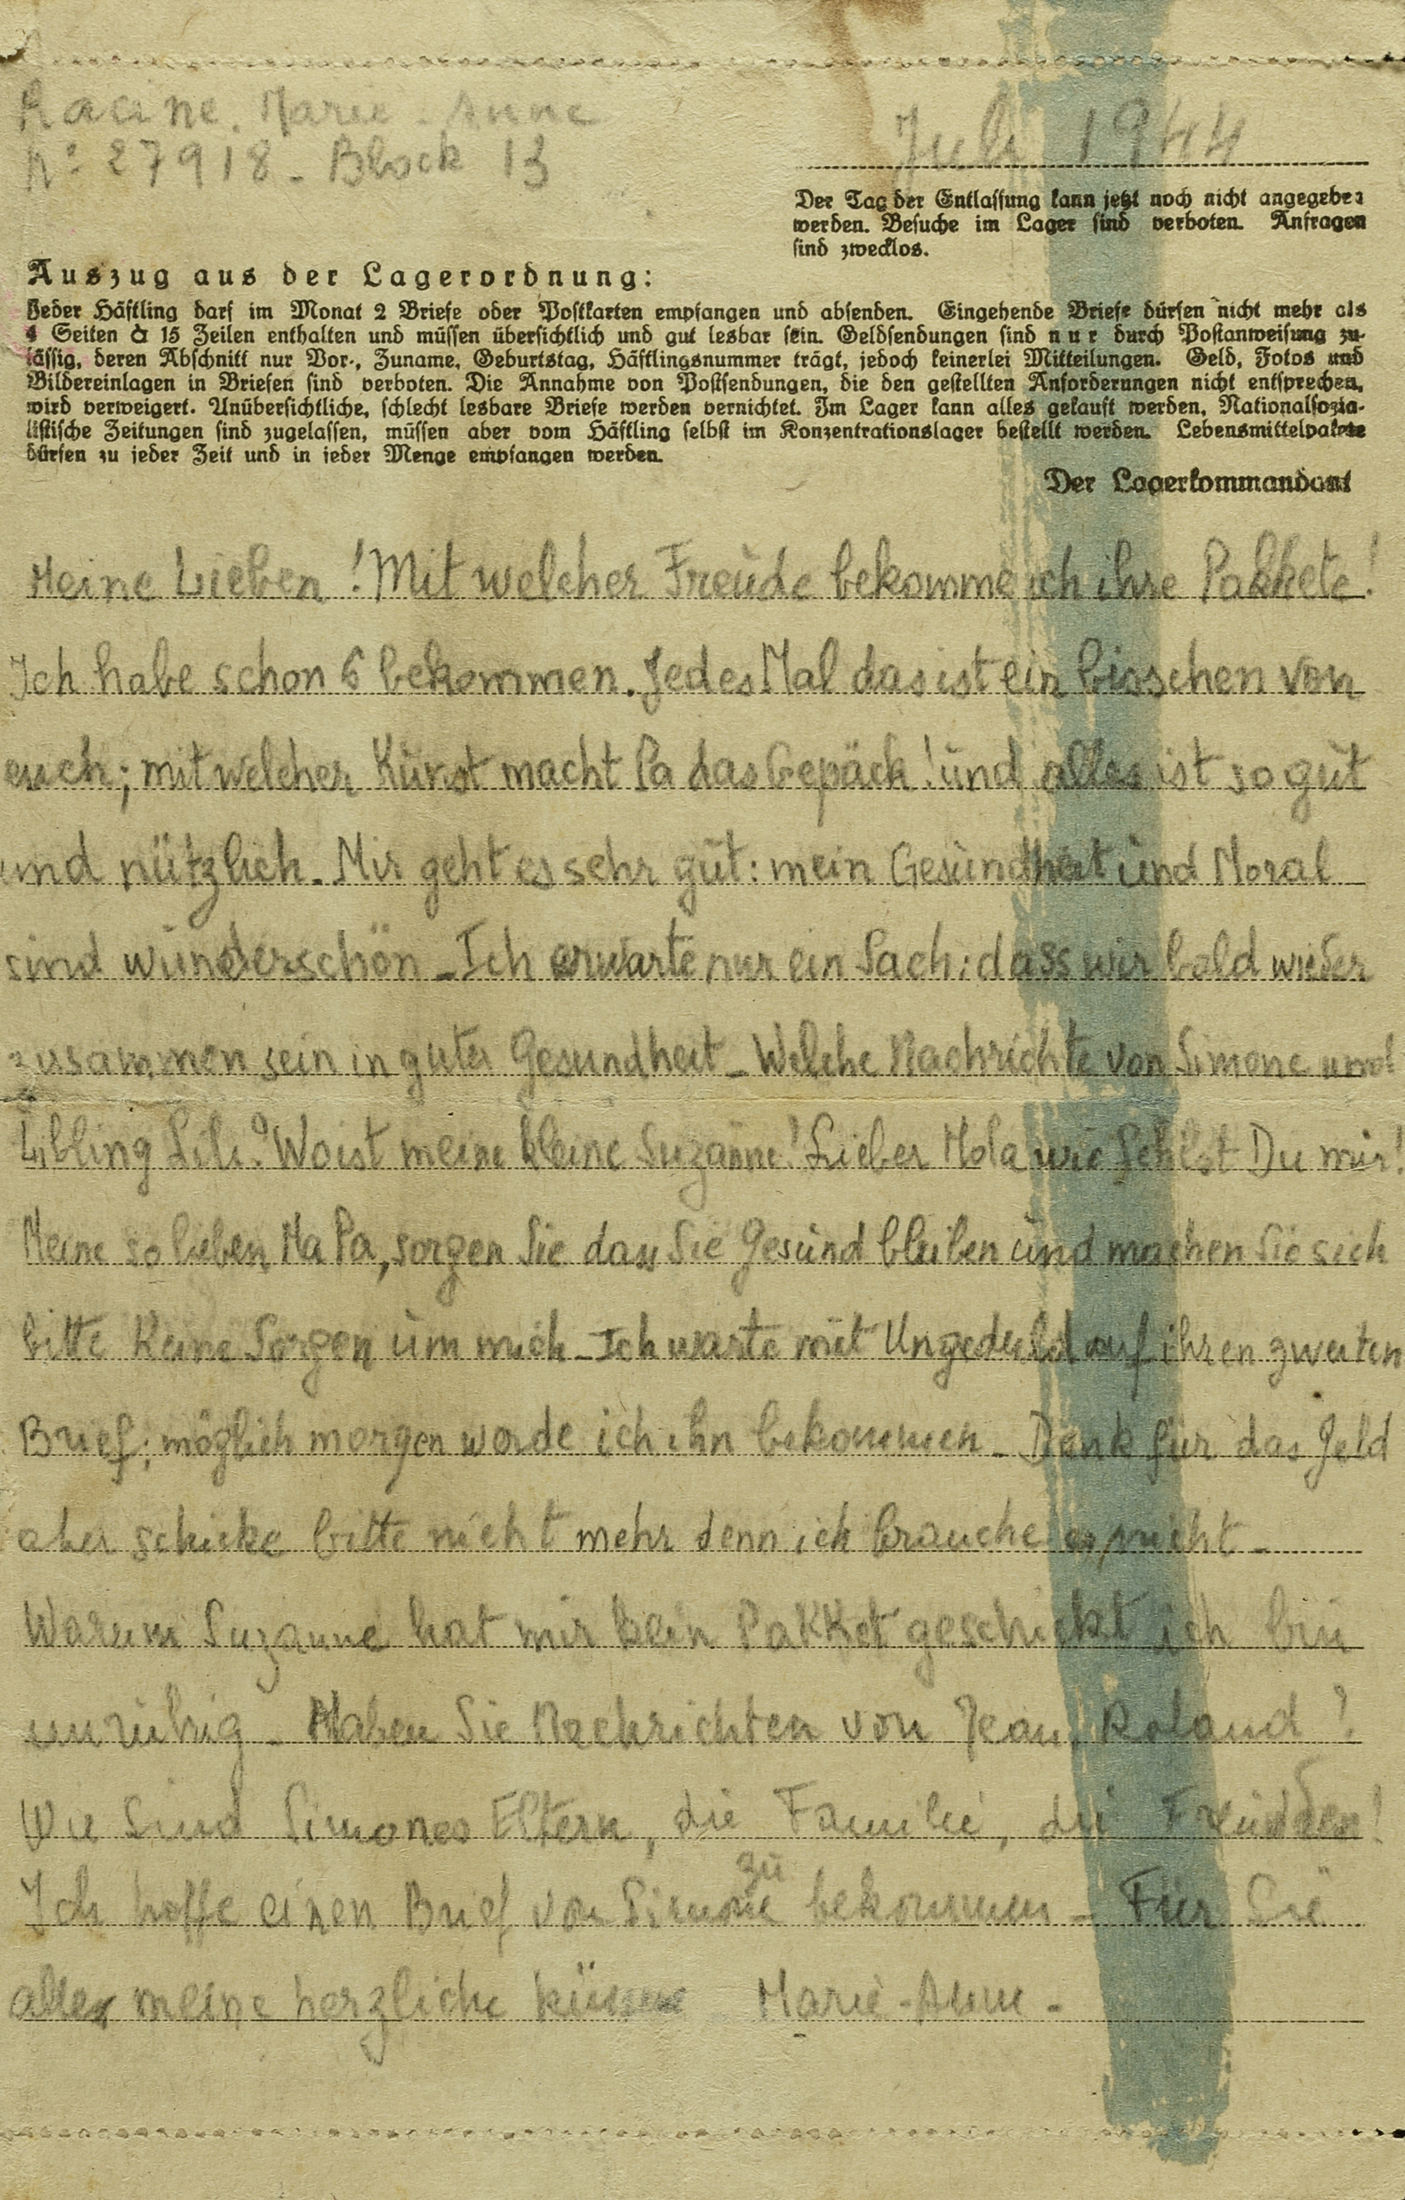 Racine. Marie-Anne
No 27918 - Block 13
Juli 1944
Der Tag der Entlassung kann jetzt noch nicht angegeben
werden. Besuche im Lager sind verboten. Anfragen
sind zwecklos.
Auszug aus der Lagerordnung:
Jeder Häftling darf im Monat 2 Briefe oder Postkarten empfangen und absenden. Eingehende Briefe dürfen nicht mehr als
4 Seiten à 15 Zeilen enthalten und müssen übersichtlich und gut lesbar sein. Geldsendungen sind nur durch Postanweisung zu-
lässig, deren Abschnitt nur Vor-, Zuname, Geburtstag, Häftlingsnummer trägt, jedoch keinerlei Mitteilungen. Geld, Fotos und
Bildereinlagen in Briefen sind verboten. Die Annahme von Postsendungen, die den gestellten Anforderungen nicht entsprechen,
wird verweigert. Unübersichtliche, schlecht lesbare Briefe werden vernichtet. Im Lager kann alles gekauft werden, Nationalsozia-
listische Zeitungen sind zugelassen, müssen aber vom Häftling selbst im Konzentrationslager bestellt werden. Lebensmittelpakete
dürfen zu jeder Zeit und in jeder Menge empfangen werden.
Der Lagerkommandant
Meine Lieben! Mit welcher Freude bekomme ich ihre Pakkete!
Ich habe schon 6 bekommen. Jedes Mal das ist ein bisschen von
euch; mit welcher Kunst macht Pa das Gepäck! und alles ist so gut
und nützlich. Mir geht es sehr gut: mein Gesundheit und Moral
sind wunderschön - Ich erwarte nur ein Sach: dass wir bald wieder
zusammen sein in guter Gesundheit - Welche Nachrichte von Simone und
Libling Lili? Wo ist meine kleine Suzanne! Lieber Mola wie fehlst Du mir!
Meine so lieben Ma Pa, sorgen Sie dass Sie Gesund bleiben und machen Sie sich
bitte keine Sorgen um mich - Ich warte mit Ungeduld auf ihren zweiten
Brief; möglich morgen werde ich ihn bekommen - Dank für das Geld
aber schicke bitte nicht mehr denn ich brauche es nicht -
Warum Suzanne hat mir kein Pakket geschickt ich bin
unruhig - Haben Sie Nachrichten von Jean, Roland?
Wie sind Simones Eltern, die Familie, die Freunden!
Ich hoffe einen Brief von Simone zu bekommen - Für Sie
alles meine herzliche küsse Marie-Anne -